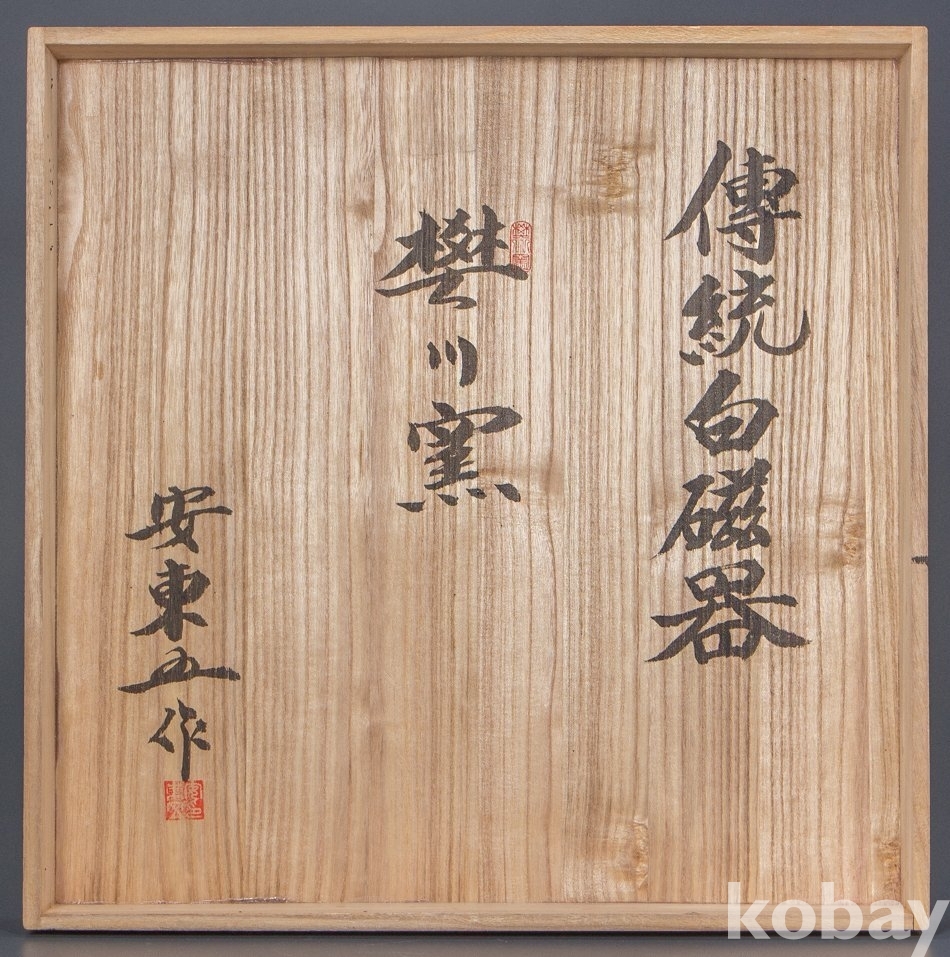 傳統白磁器
樊川窯
安東五作
kobay